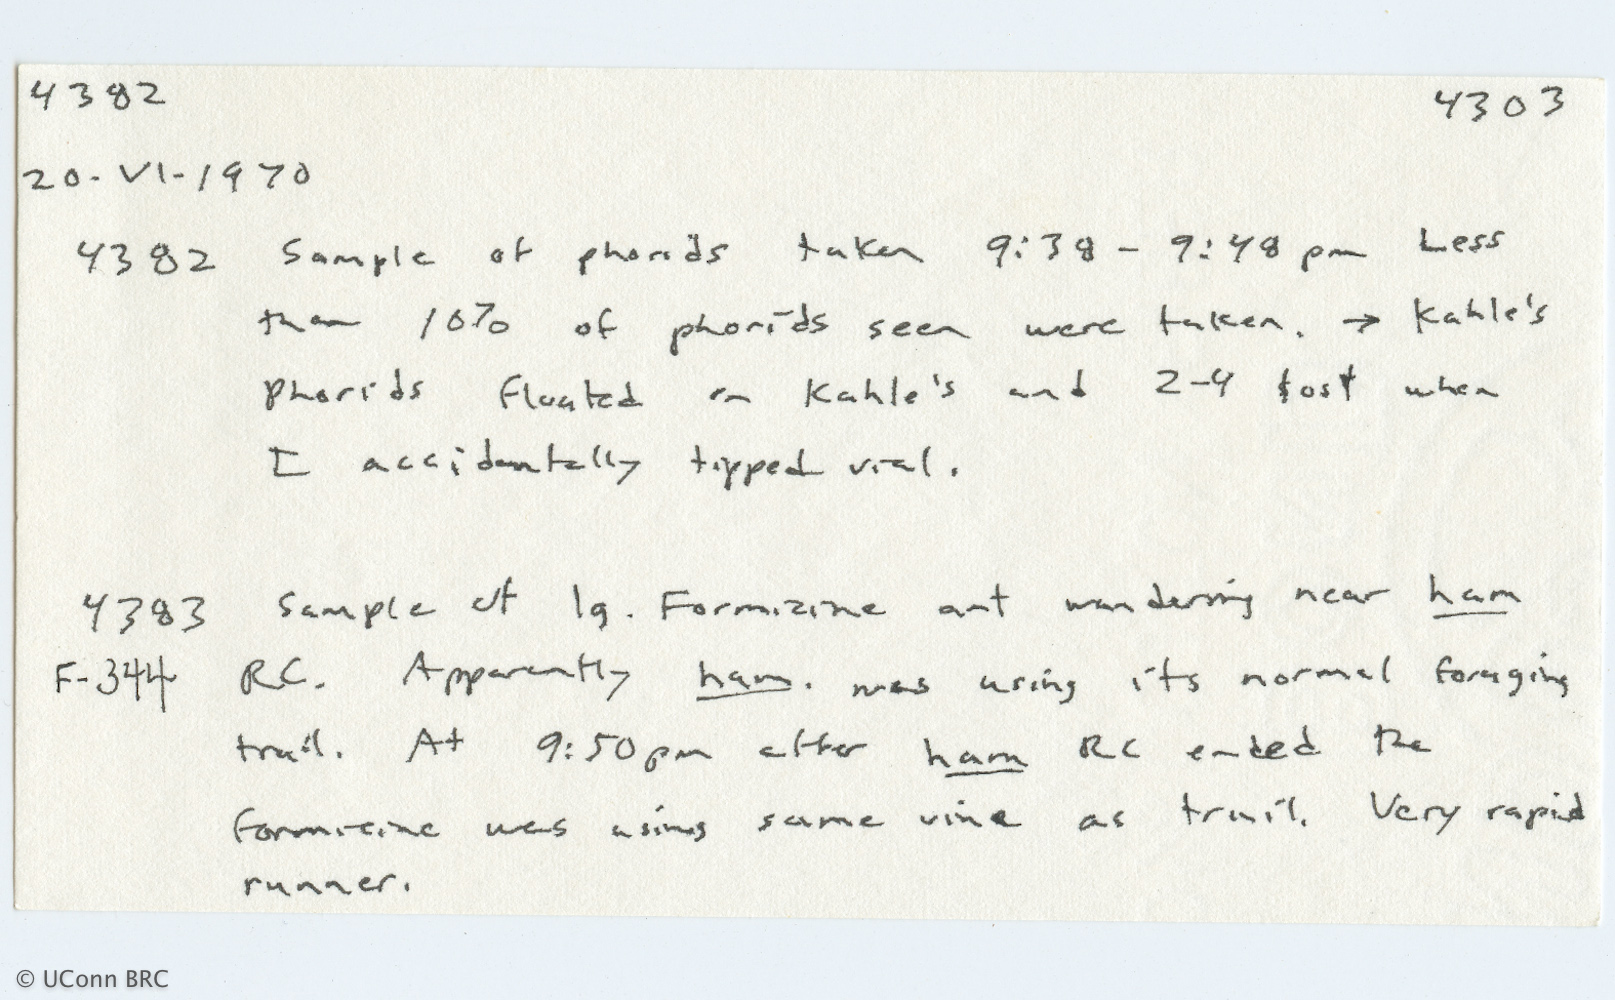 4382 4303
20-VI-1970
4382 Sample of phorids taken 9:38 - 9:48 pm Less
than 10% of phorids seen were taken. → Kahle's
Phorids floated on Kahle's and 2-4 lost when
I accidentally tipped vial.
4383 Sample of lg. Formicine ant wandering near ham
F-344 RC. Apparently ham. was using its normal foraging
trail. At 9:50 pm after ham RC ended the
formicine was using same vine as trail. Very rapid
runner.
© UConn BRC